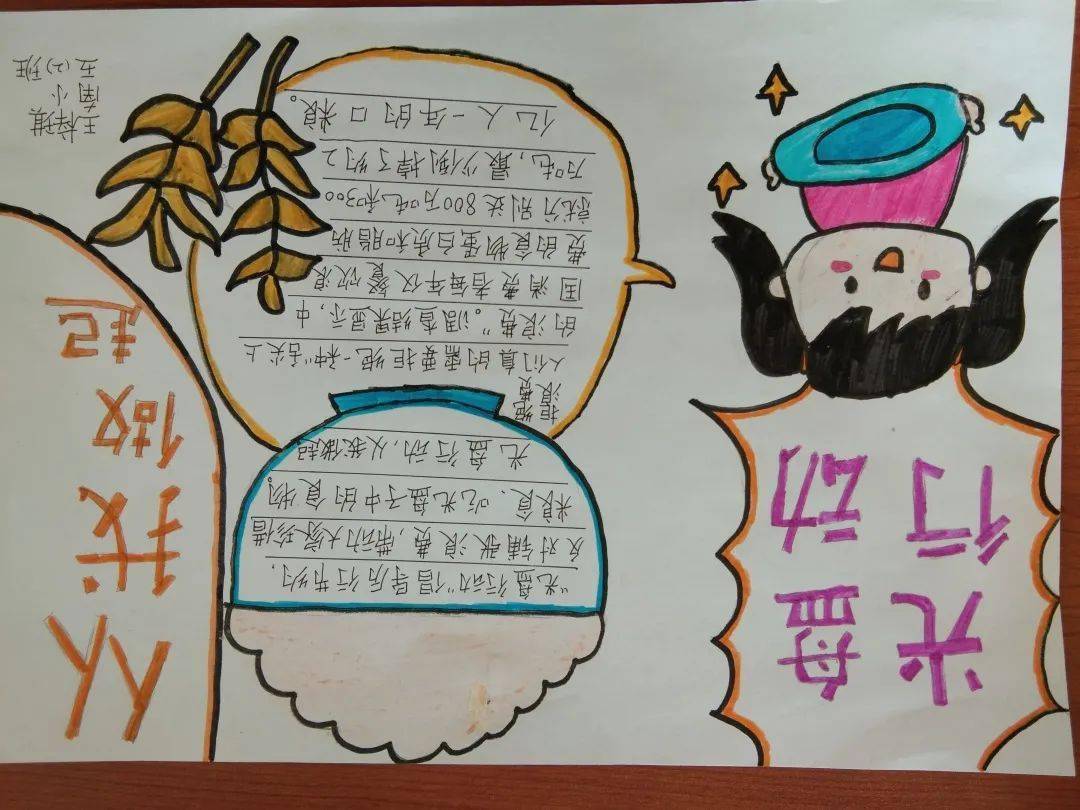 光盘
行动
“光盘行动”倡导厉行节约，
反对铺张浪费，带动大家珍惜
粮食、吃光盘子中的食物。
光盘行动，从我做起。
拒绝
浪费
人们真的需要拒绝一种“舌尖上
的浪费”。调查结果显示，中
国消费者每年仅餐饮浪
费的食物蛋白质和脂肪
就分别达800万吨和300
万吨，最少倒掉了约2
亿人一年的口粮。
从
我
做
起
王梓琪
南小
五(2)班